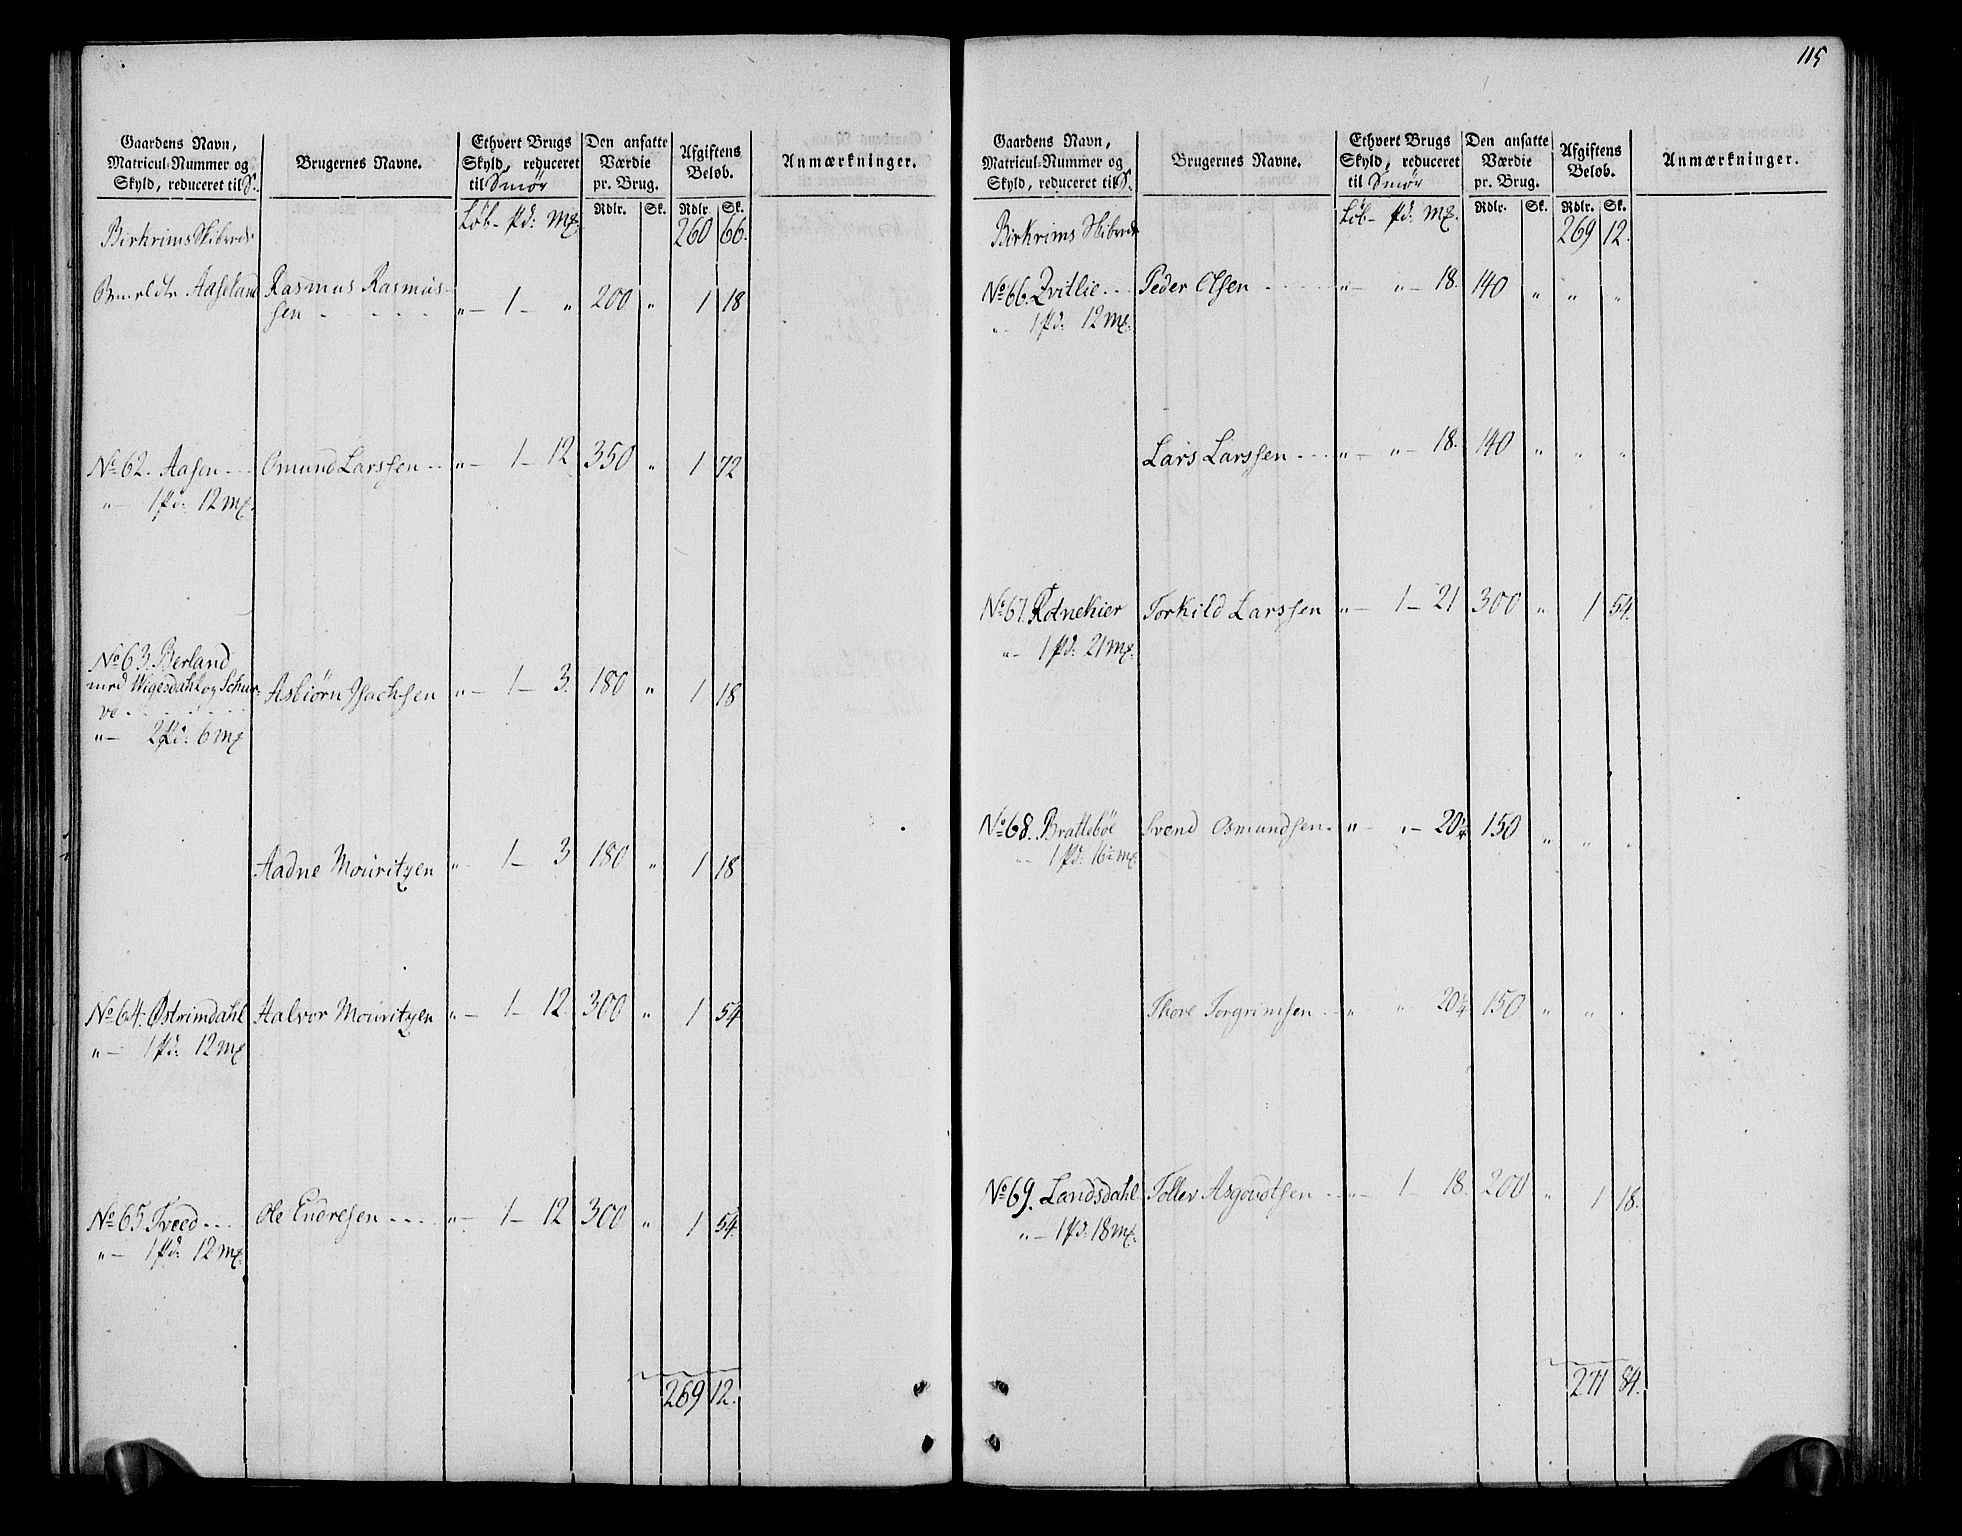 Gaardens Navn, Matricul-Nummer og Skyld, reduceret til S. | Brugernes Navne. | Ethvert Brugs Skyld, reduceret til Smör | Den ansatte Værdie pr. Brug. | Afgiftens Beløb. | Anmærkninger.
Löb - Pd: Mk. | Rdlr. | Sk. | Rdlr. | Sk.
Birkrims Skibrede | 260 | 66.
Aaseland | Rasmus Rasmus-
sen | " - 1 - " | 200 | " | 1 | 18
No 62. Aasen | Osmund Larssen | " - 1 - 12 | 350 | " | 1 | 72
" - 1 Pd: 12 Mk.
No 63. Berland
med Wigesdahl og Schur-
ve | Asbiørn Isachsen | " - 1 - 3. | 180 | " | 1 | 18
" - 2 Pd: 6 Mk
Aadne Mouritzen | " - 1 - 3 | 180 | " | 1 | 18
No 64. Østrimdahl | Halvor Mouritzen | " - 1 - 12. | 300 | " | 1 | 54
" - 1 Pd: 12 Mk
No 65. Tveed | Ole Endresen | " - 1 - 12 | 300 | " | 1 | 54.
" - 1 Pd: 12 Mk.
269 | 12.
115
Gaardens Navn, Matricul-Nummer og Skyld, reduceret til S. | Brugernes Navne. | Ethvert Brugs Skyld, reduceret til Smör | Den ansatte Værdie pr. Brug. | Afgiftens Beløb. | Anmærkninger.
Löb - Pd: Mk. | Rdlr. | Sk. | Rdlr. | Sk.
Birkrims Skibrede | 269 | 12.
No 66. Qvitlie | Peder Olsen | " - " - 18. | 140 | " | " | "
" 1 Pd: 12 Mk.
Lars Larssen | " - " - 18. | 140 | " | " | "
No 67. Rotnekier | Torkild Larssen | " - 1 - 21 | 300 | " | 1 | 54.
" - 1 Pd: 21 Mk.
No 68. Brattebøe | Svend Osmundsen | " - " - 20¼ | 150 | " | " | "
" 1 Pd: 16½ Mk.
Thore Torgrimsen | " " 20¼ | 150 | " | " | "
No 69. Landsdahl | Tollev Asgoudtsen | " - 1 - 18. | 200 | " | 1 | 18.
" - 1 Pd: 18 Mk.
271 | 84.